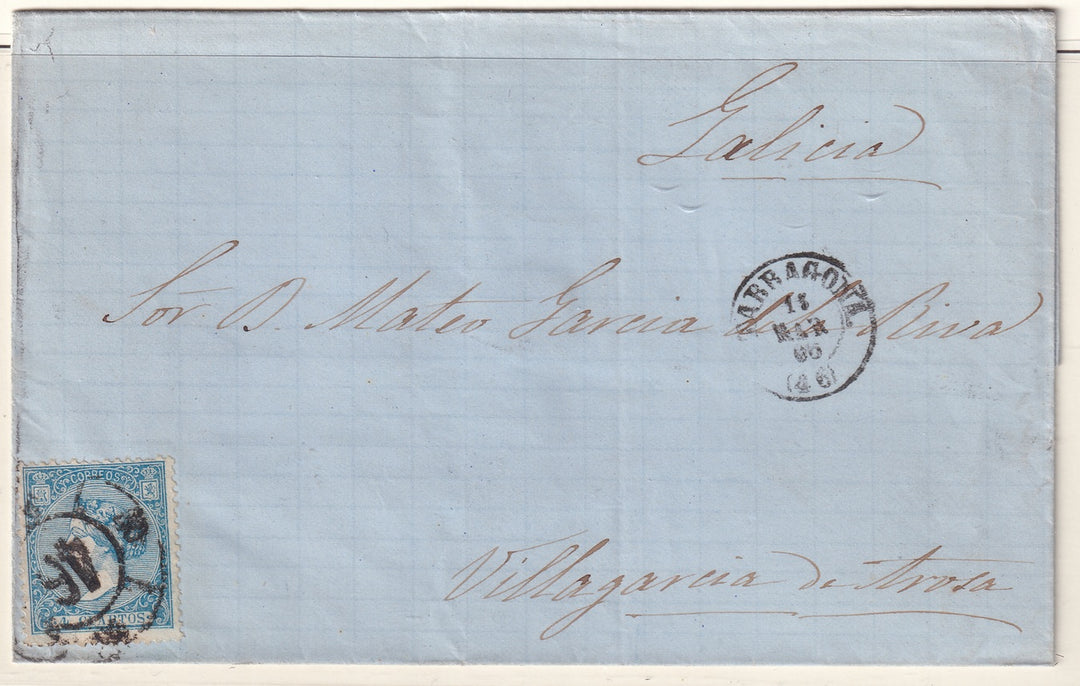 Galicia
Sor. D. Mateo Garcia de la Riva
TARRAGONA
MAR
66
(46)
Villagarcia de Arosa
CORREOS
4 CUATOS
46